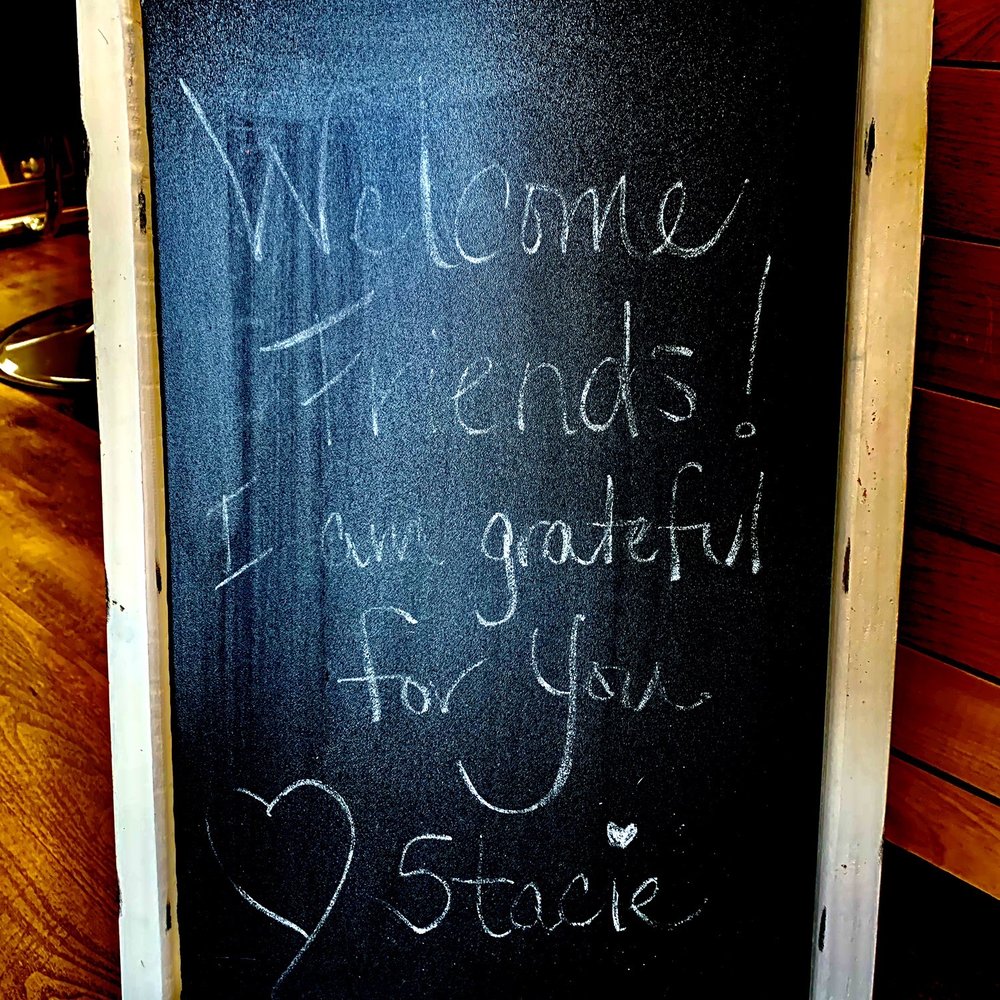 Welcome
Friends!
I am grateful
for you
Stacie